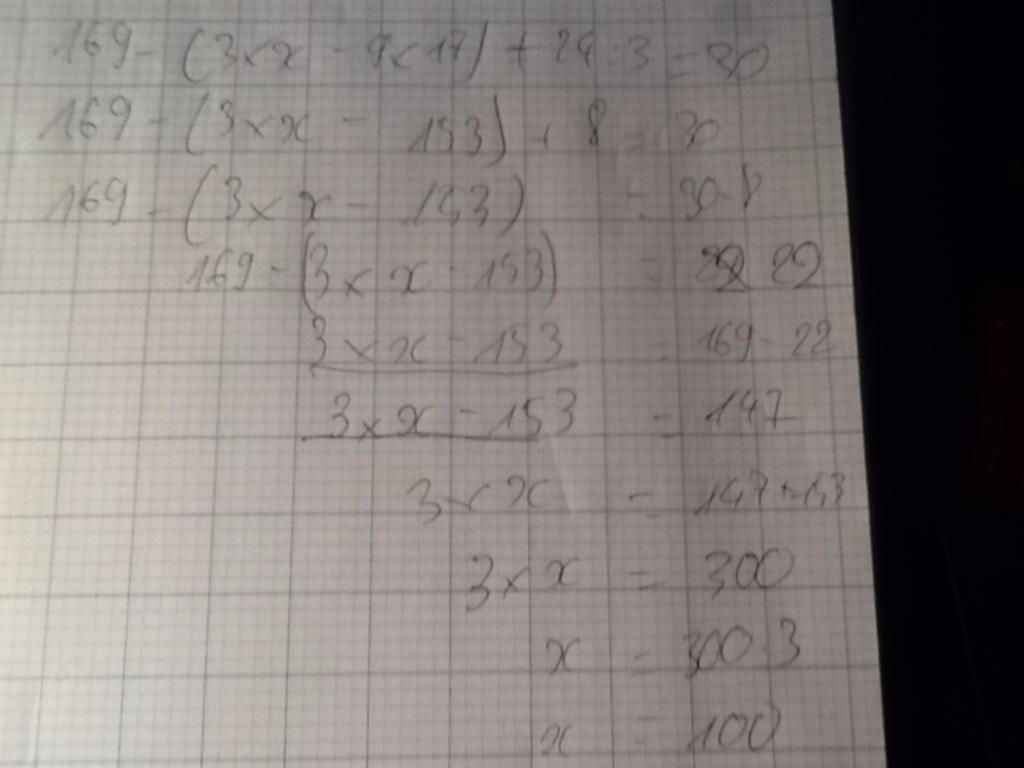 169 - (3 x x - 9 x 17) + 24 : 3 = 30
169 - (3 x x - 153) + 8 = 30
169 - (3 x x - 153) = 30 - 8
169 - (3 x x - 153) = 22
3 x x - 153 = 169 - 22
3 x x - 153 = 147
3 x x = 147 + 153
3 x x = 300
x = 300 : 3
x = 100